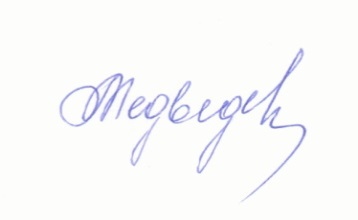 Медведев